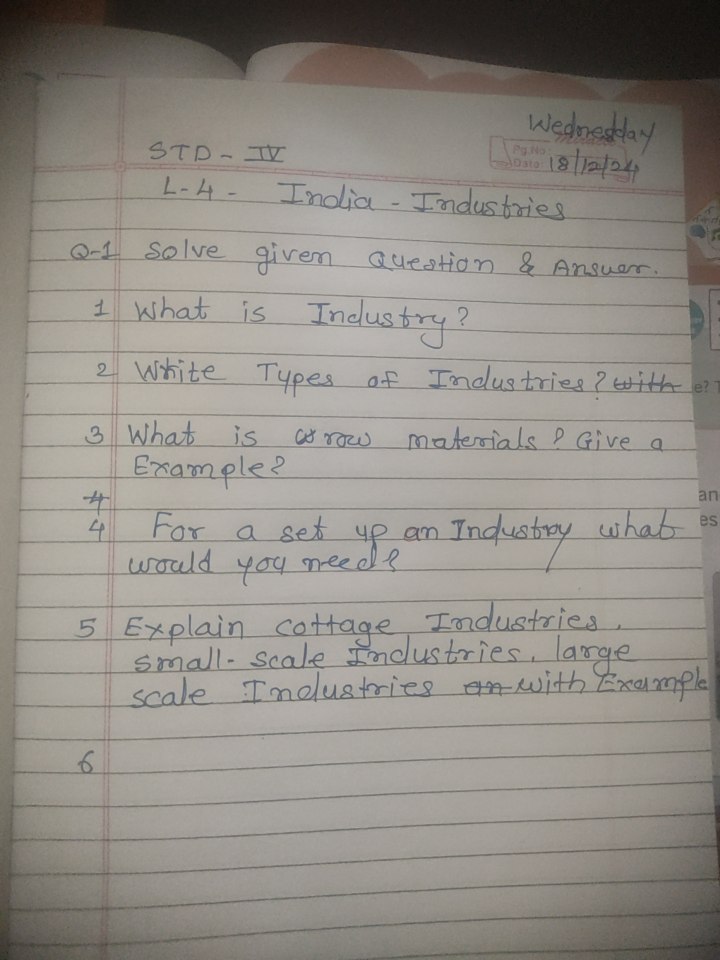 Wednesday
Pg.No:
Date: 18/12/24
STD - IV
L-4 - India - Industries
Q-1 Solve given Question & Answer.
1 What is Industry?
2 Write Types of Industries? with
3 What is raw materials? Give a
Example?
4
4 For a set up an Industry what
would you need?
5 Explain cottage Industries,
small-scale Industries, large
scale Industries an with Example
6
e? T
an
es